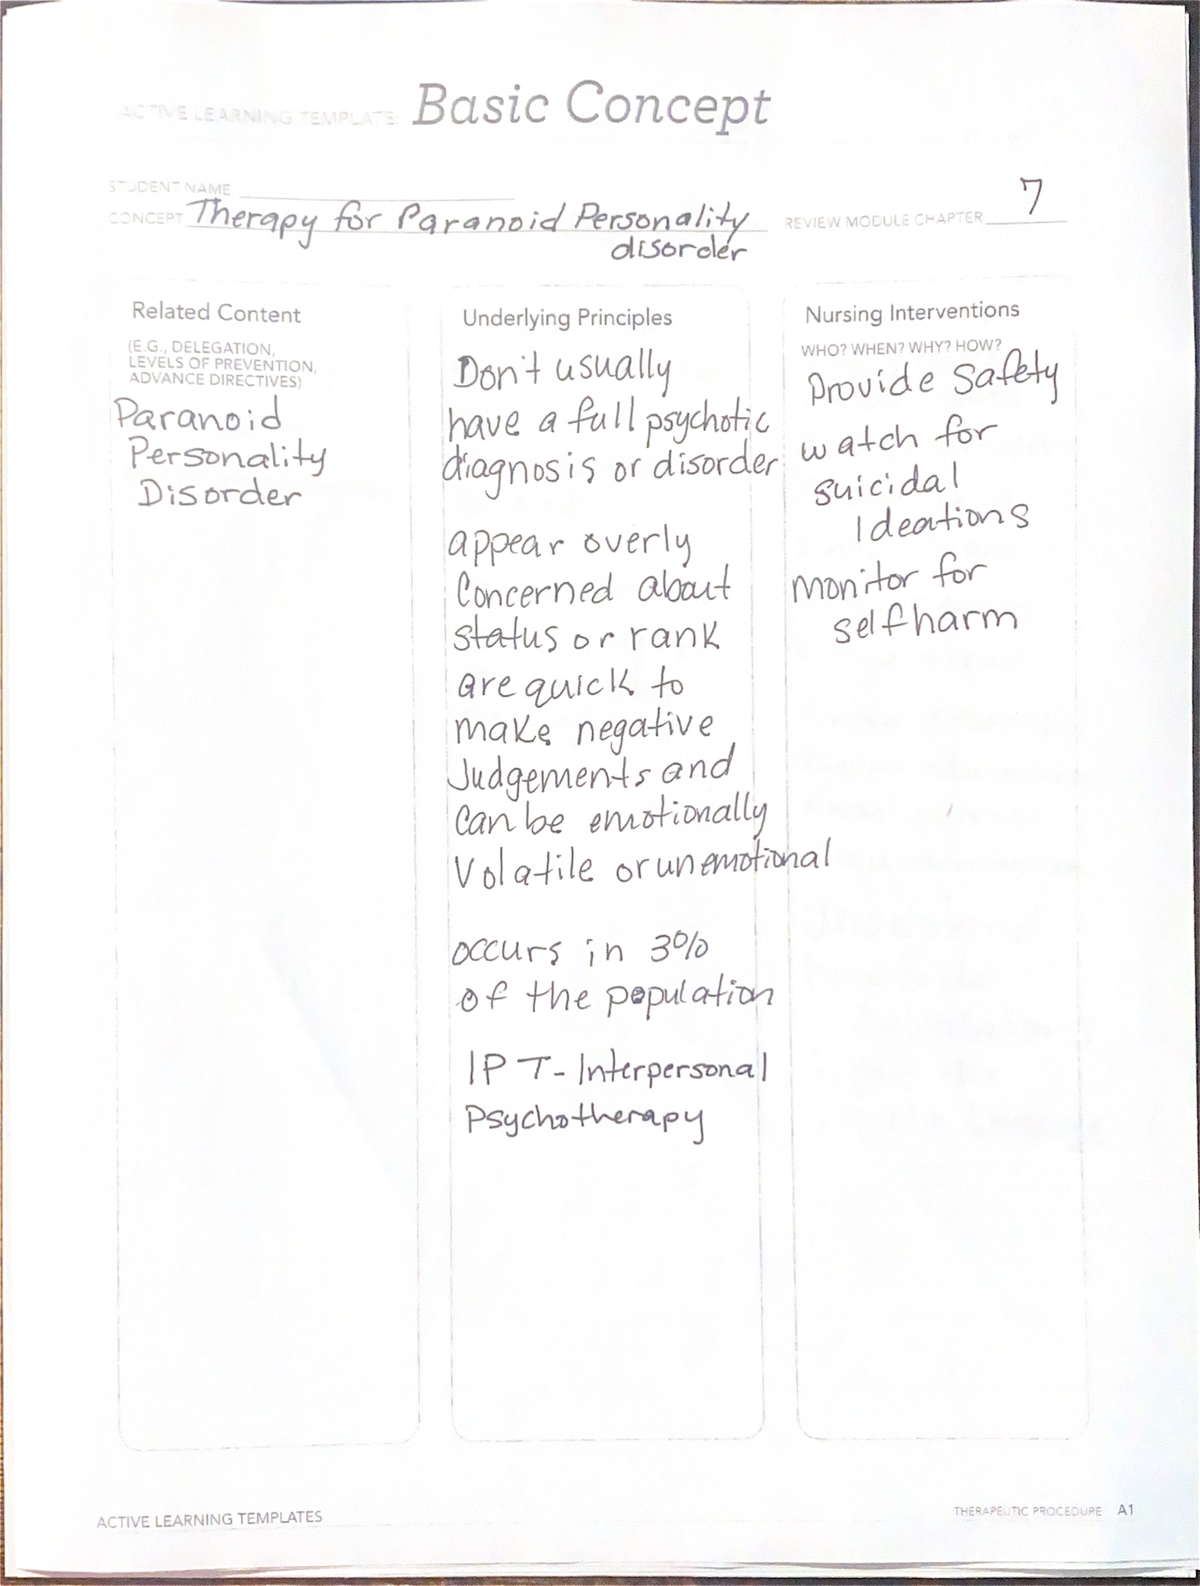 ACTIVE LEARNING TEMPLATE: Basic Concept
STUDENT NAME
CONCEPT Therapy for Paranoid Personality disorder
REVIEW MODULE CHAPTER 7
Related Content
(E.G., DELEGATION,
LEVELS OF PREVENTION,
ADVANCE DIRECTIVES)
Paranoid
Personality
Disorder
Underlying Principles
Don't usually
have a full psychotic
diagnosis or disorder
appear overly
Concerned about
status or rank
are quick to
make negative
Judgements and
can be emotionally
Volatile or unemotional
occurs in 3%
of the population
IPT- Interpersonal
Psychotherapy
Nursing Interventions
WHO? WHEN? WHY? HOW?
Provide Safety
watch for
suicidal
Ideations
monitor for
selfharm
ACTIVE LEARNING TEMPLATES
THERAPEUTIC PROCEDURE A1